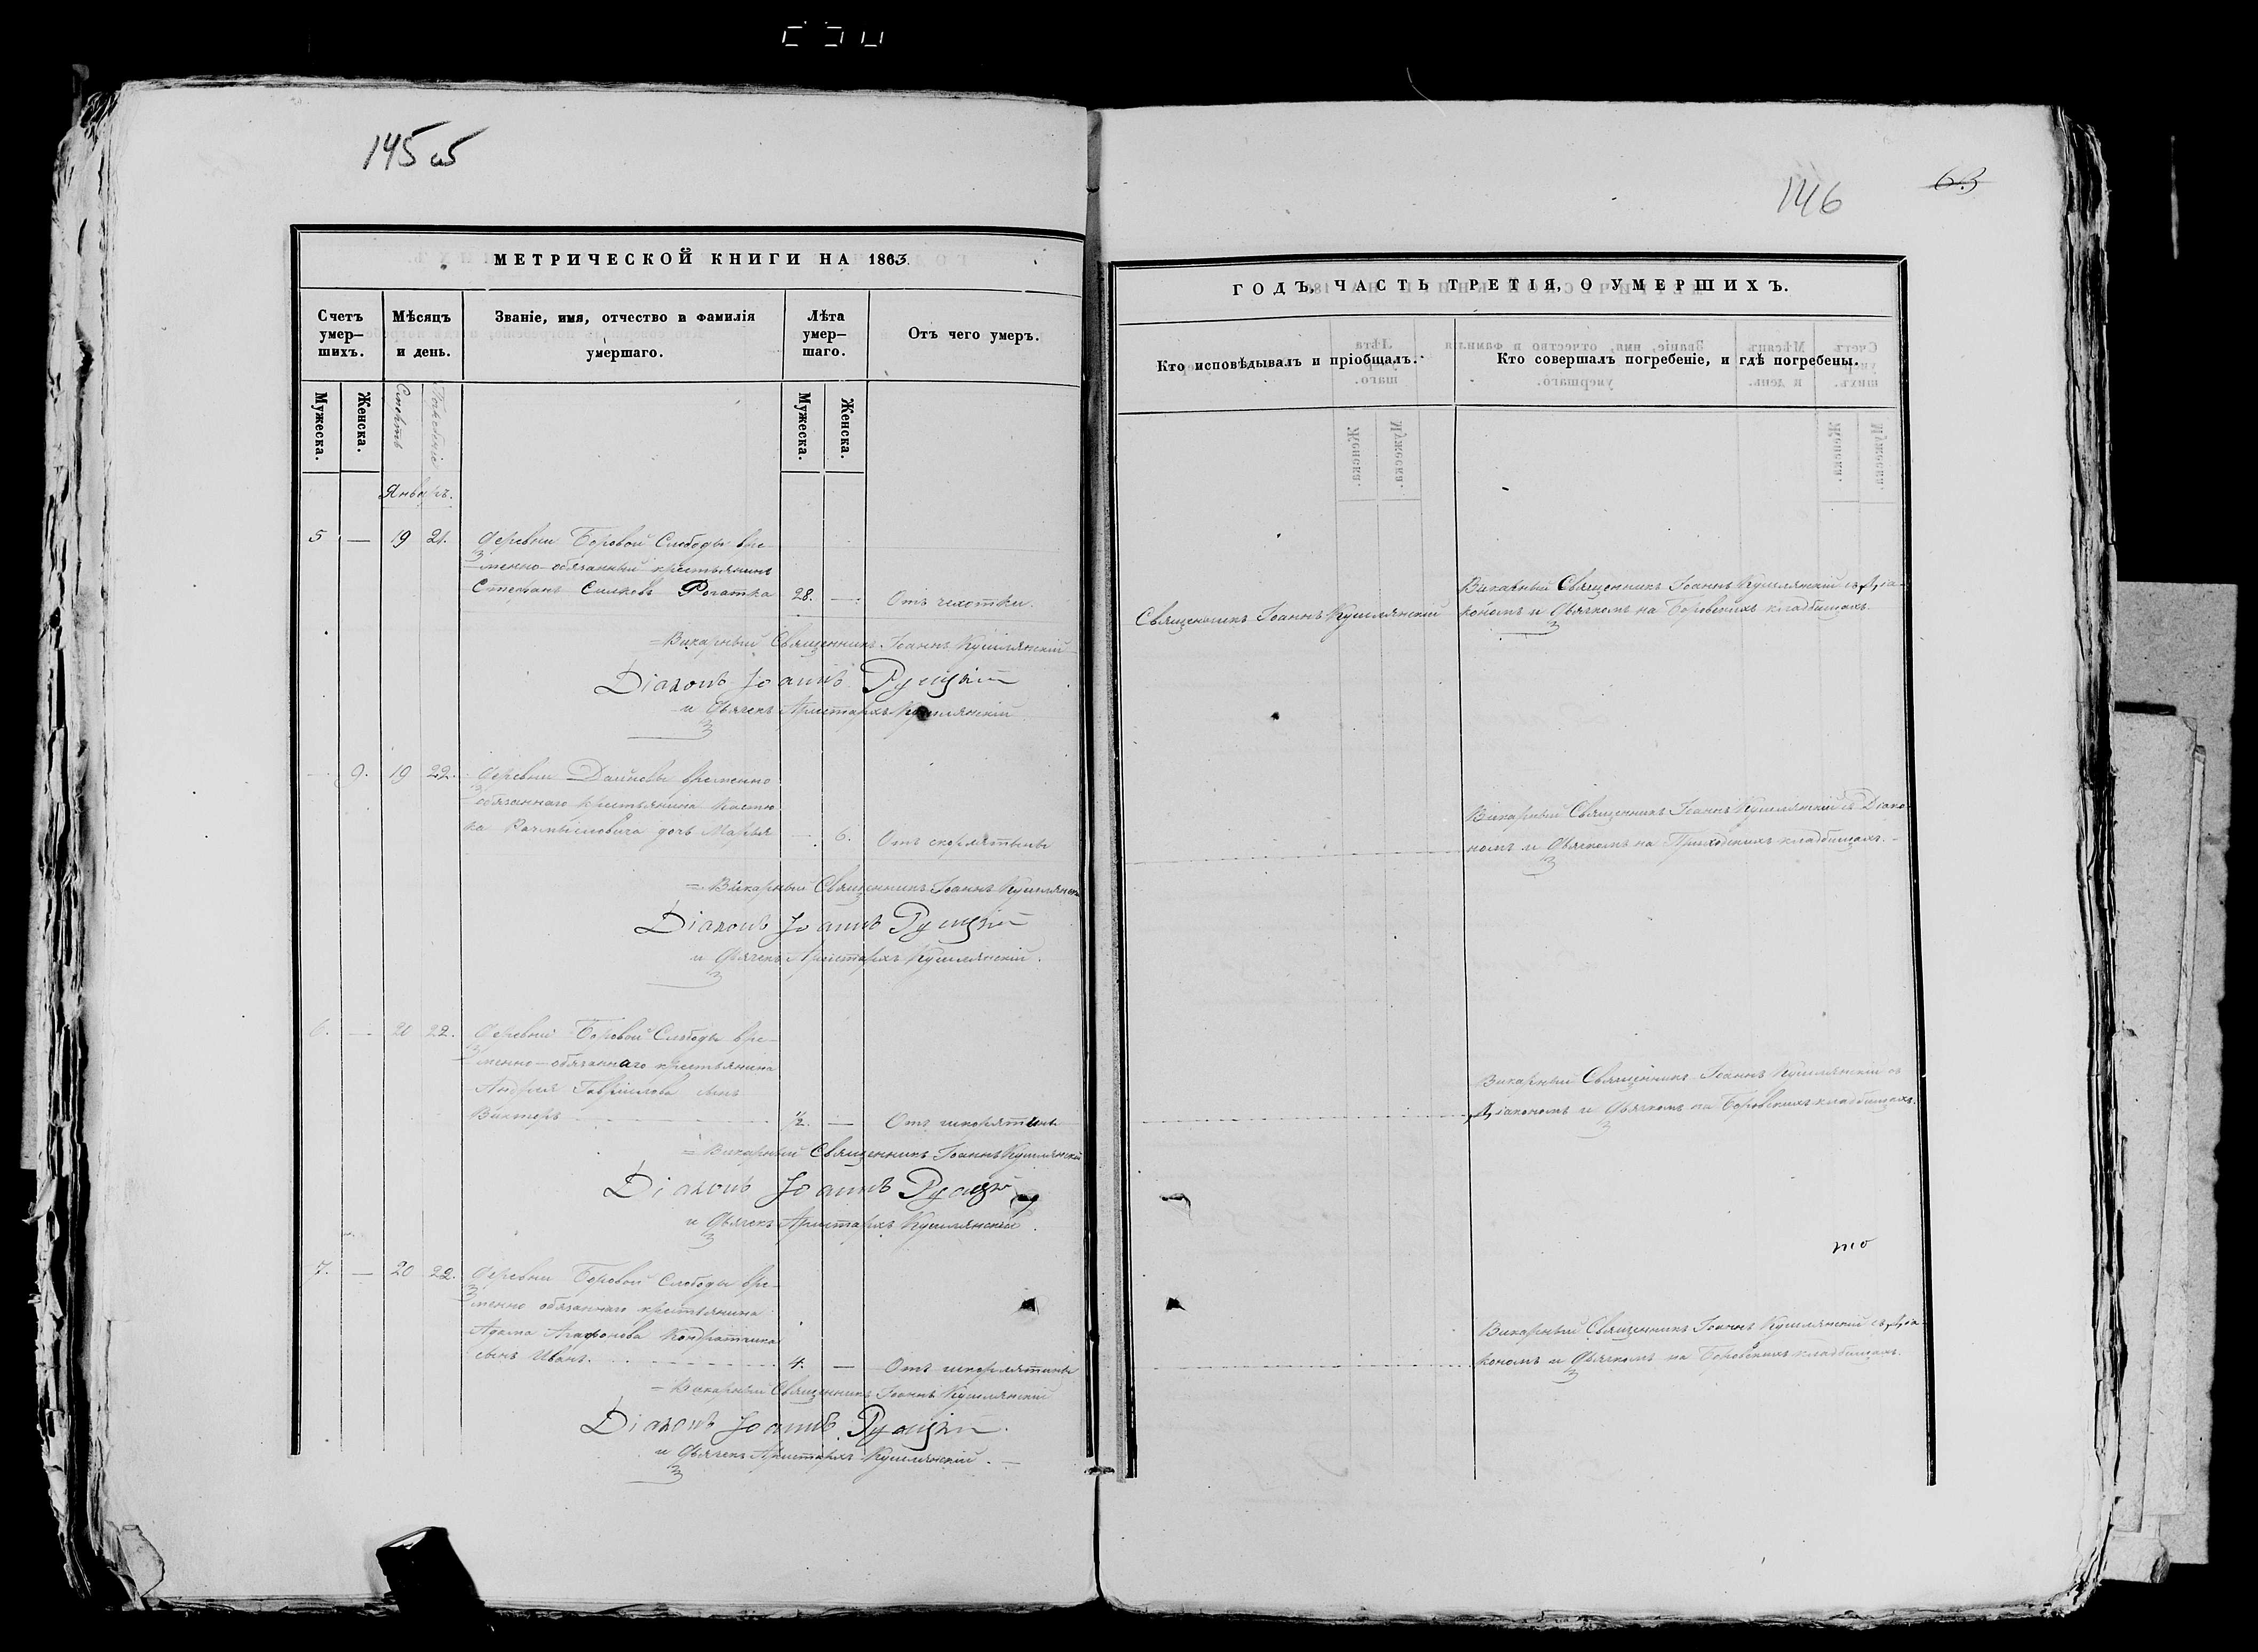 145 об
МЕТРИЧЕСКОЙ КНИГИ НА 1863.
Счетъ умер-шихъ.
Мѣсяцъ и день.
Званіе, имя, отчество и фамилія умершаго.
Лѣта умер-шаго.
Отъ чего умеръ.
Мужеска.
Женска.
Смерть
Погребеніе
Мужеска.
Женска.
Январь.
5 — 19 21. Деревни Боровой Слободы вре-
менно-обязанный крестьянинъ
Стефанъ Рогатка 28. — Отъ чахотки.
Викарный Священникъ Іоаннъ Кушлянскій
Діаконъ Іоаннъ
и Дьячекъ Аристархъ Кушлянскій
— 9. 19 22. Деревни временно
обязаннаго крестьянина
дочь Марья — 6. Отъ скорлятыны
Викарный Священникъ Іоаннъ Кушлянскій
Діаконъ Іоаннъ
и Дьячекъ Аристархъ Кушлянскій.
6. — 20 22. Деревни Боровой Слободы вре-
менно-обязаннаго крестьянина
Андрея Гаврилова сынъ
Викторъ ½. — Отъ шкорлятыны
Викарный Священникъ Іоаннъ Кушлянскій
Діаконъ Іоаннъ
и Дьячекъ Аристархъ Кушлянскій.
7. — 20 22. Деревни Боровой Слободы вре-
менно обязаннаго крестьянина
Адама Агафонова
сынъ Иванъ. 4. — Отъ шкорлятыны
Викарный Священникъ Іоаннъ Кушлянскій
Діаконъ Іоаннъ
и Дьячекъ Аристархъ Кушлянскій.
146
63
ГОДЪ, ЧАСТЬ ТРЕТІЯ, О УМЕРШИХЪ.
Кто исповѣдывалъ и пріобщалъ.
Кто совершалъ погребеніе, и гдѣ погребены.
Священникъ Іоаннъ Кушлянскій
Викарный Священникъ Іоаннъ Кушлянскій съ Діа-
кономъ и Дьячкомъ на Боровскихъ кладбищахъ.
Викарный Священникъ Іоаннъ Кушлянскій съ Діако-
номъ и Дьячкомъ на Приходскихъ кладбищахъ.
Викарный Священникъ Іоаннъ Кушлянскій съ
Діакономъ и Дьячкомъ на Боровскихъ кладбищахъ.
Викарный Священникъ Іоаннъ Кушлянскій съ Діа
кономъ и Дьячкомъ на Боровскихъ кладбищахъ.